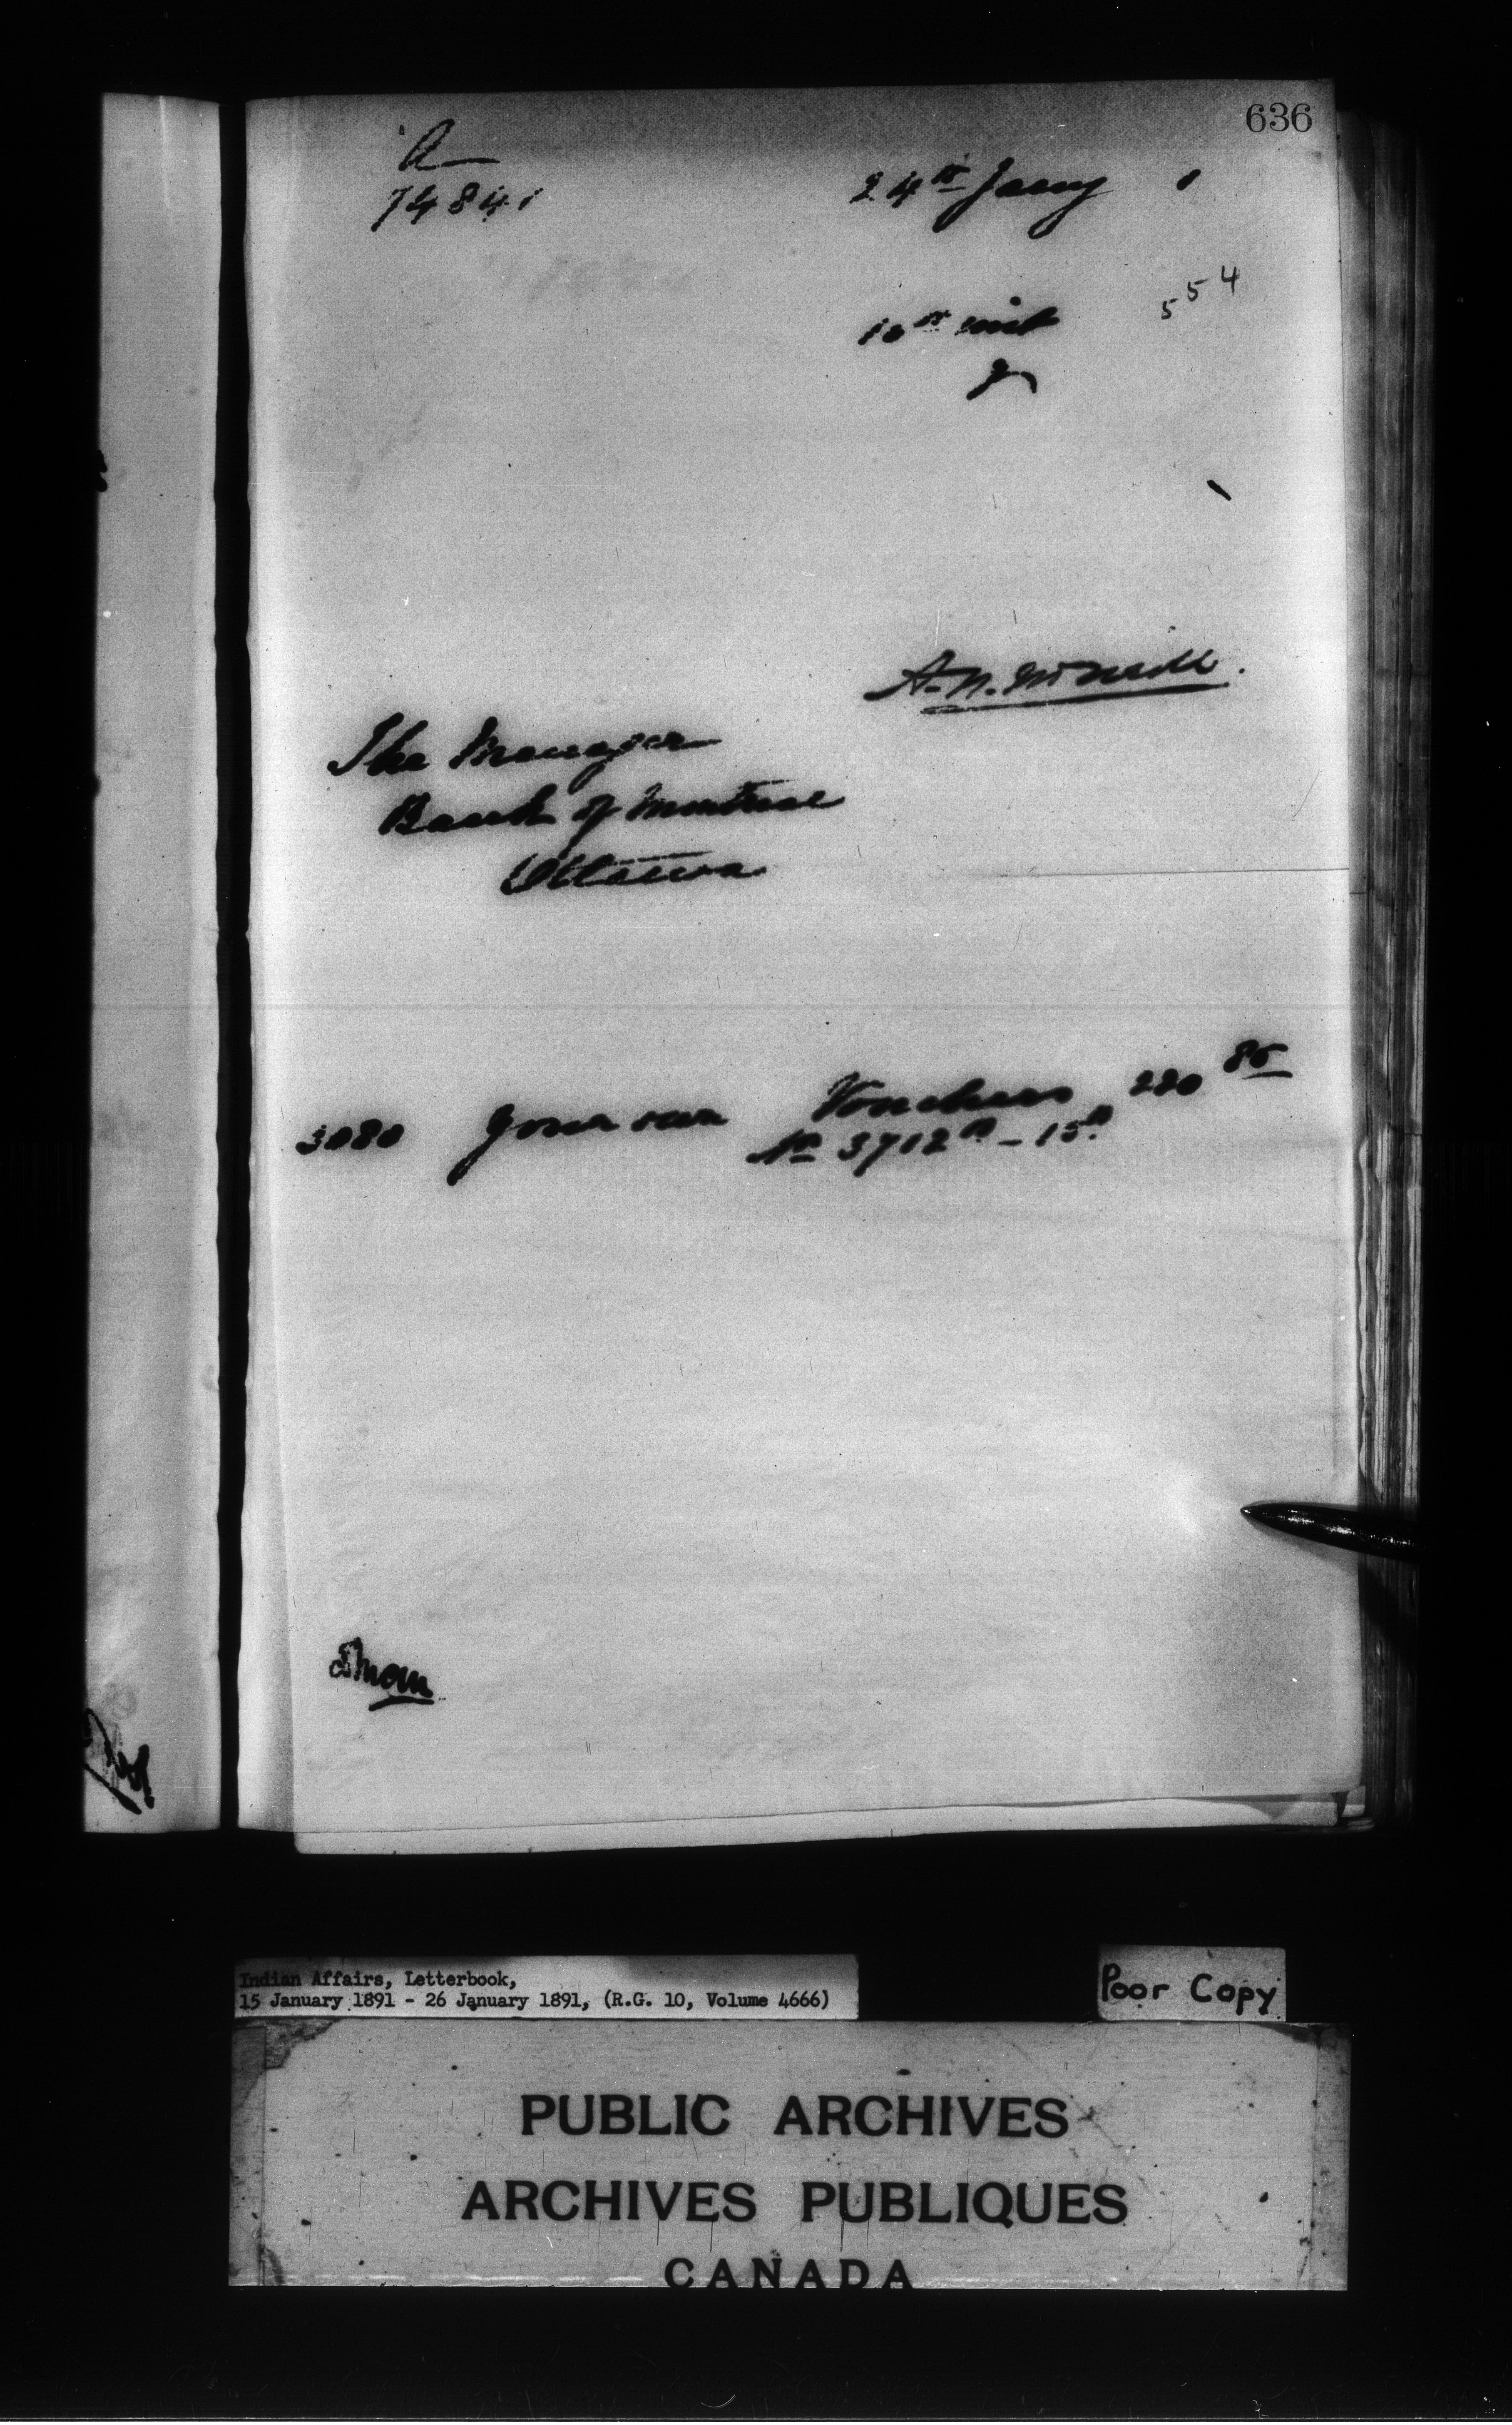 636
A
74841
24th Jany 1
554
10th inst
A. N. McNeill.
The Manager
Bank of Montreal
Ottawa
3080 your own Vouchers 220 85
No 3712 - 15
Indian Affairs, Letterbook,
15 January 1891 - 26 January 1891, (R.G. 10, Volume 4666)
Poor Copy
PUBLIC ARCHIVES
ARCHIVES PUBLIQUES
CANADA